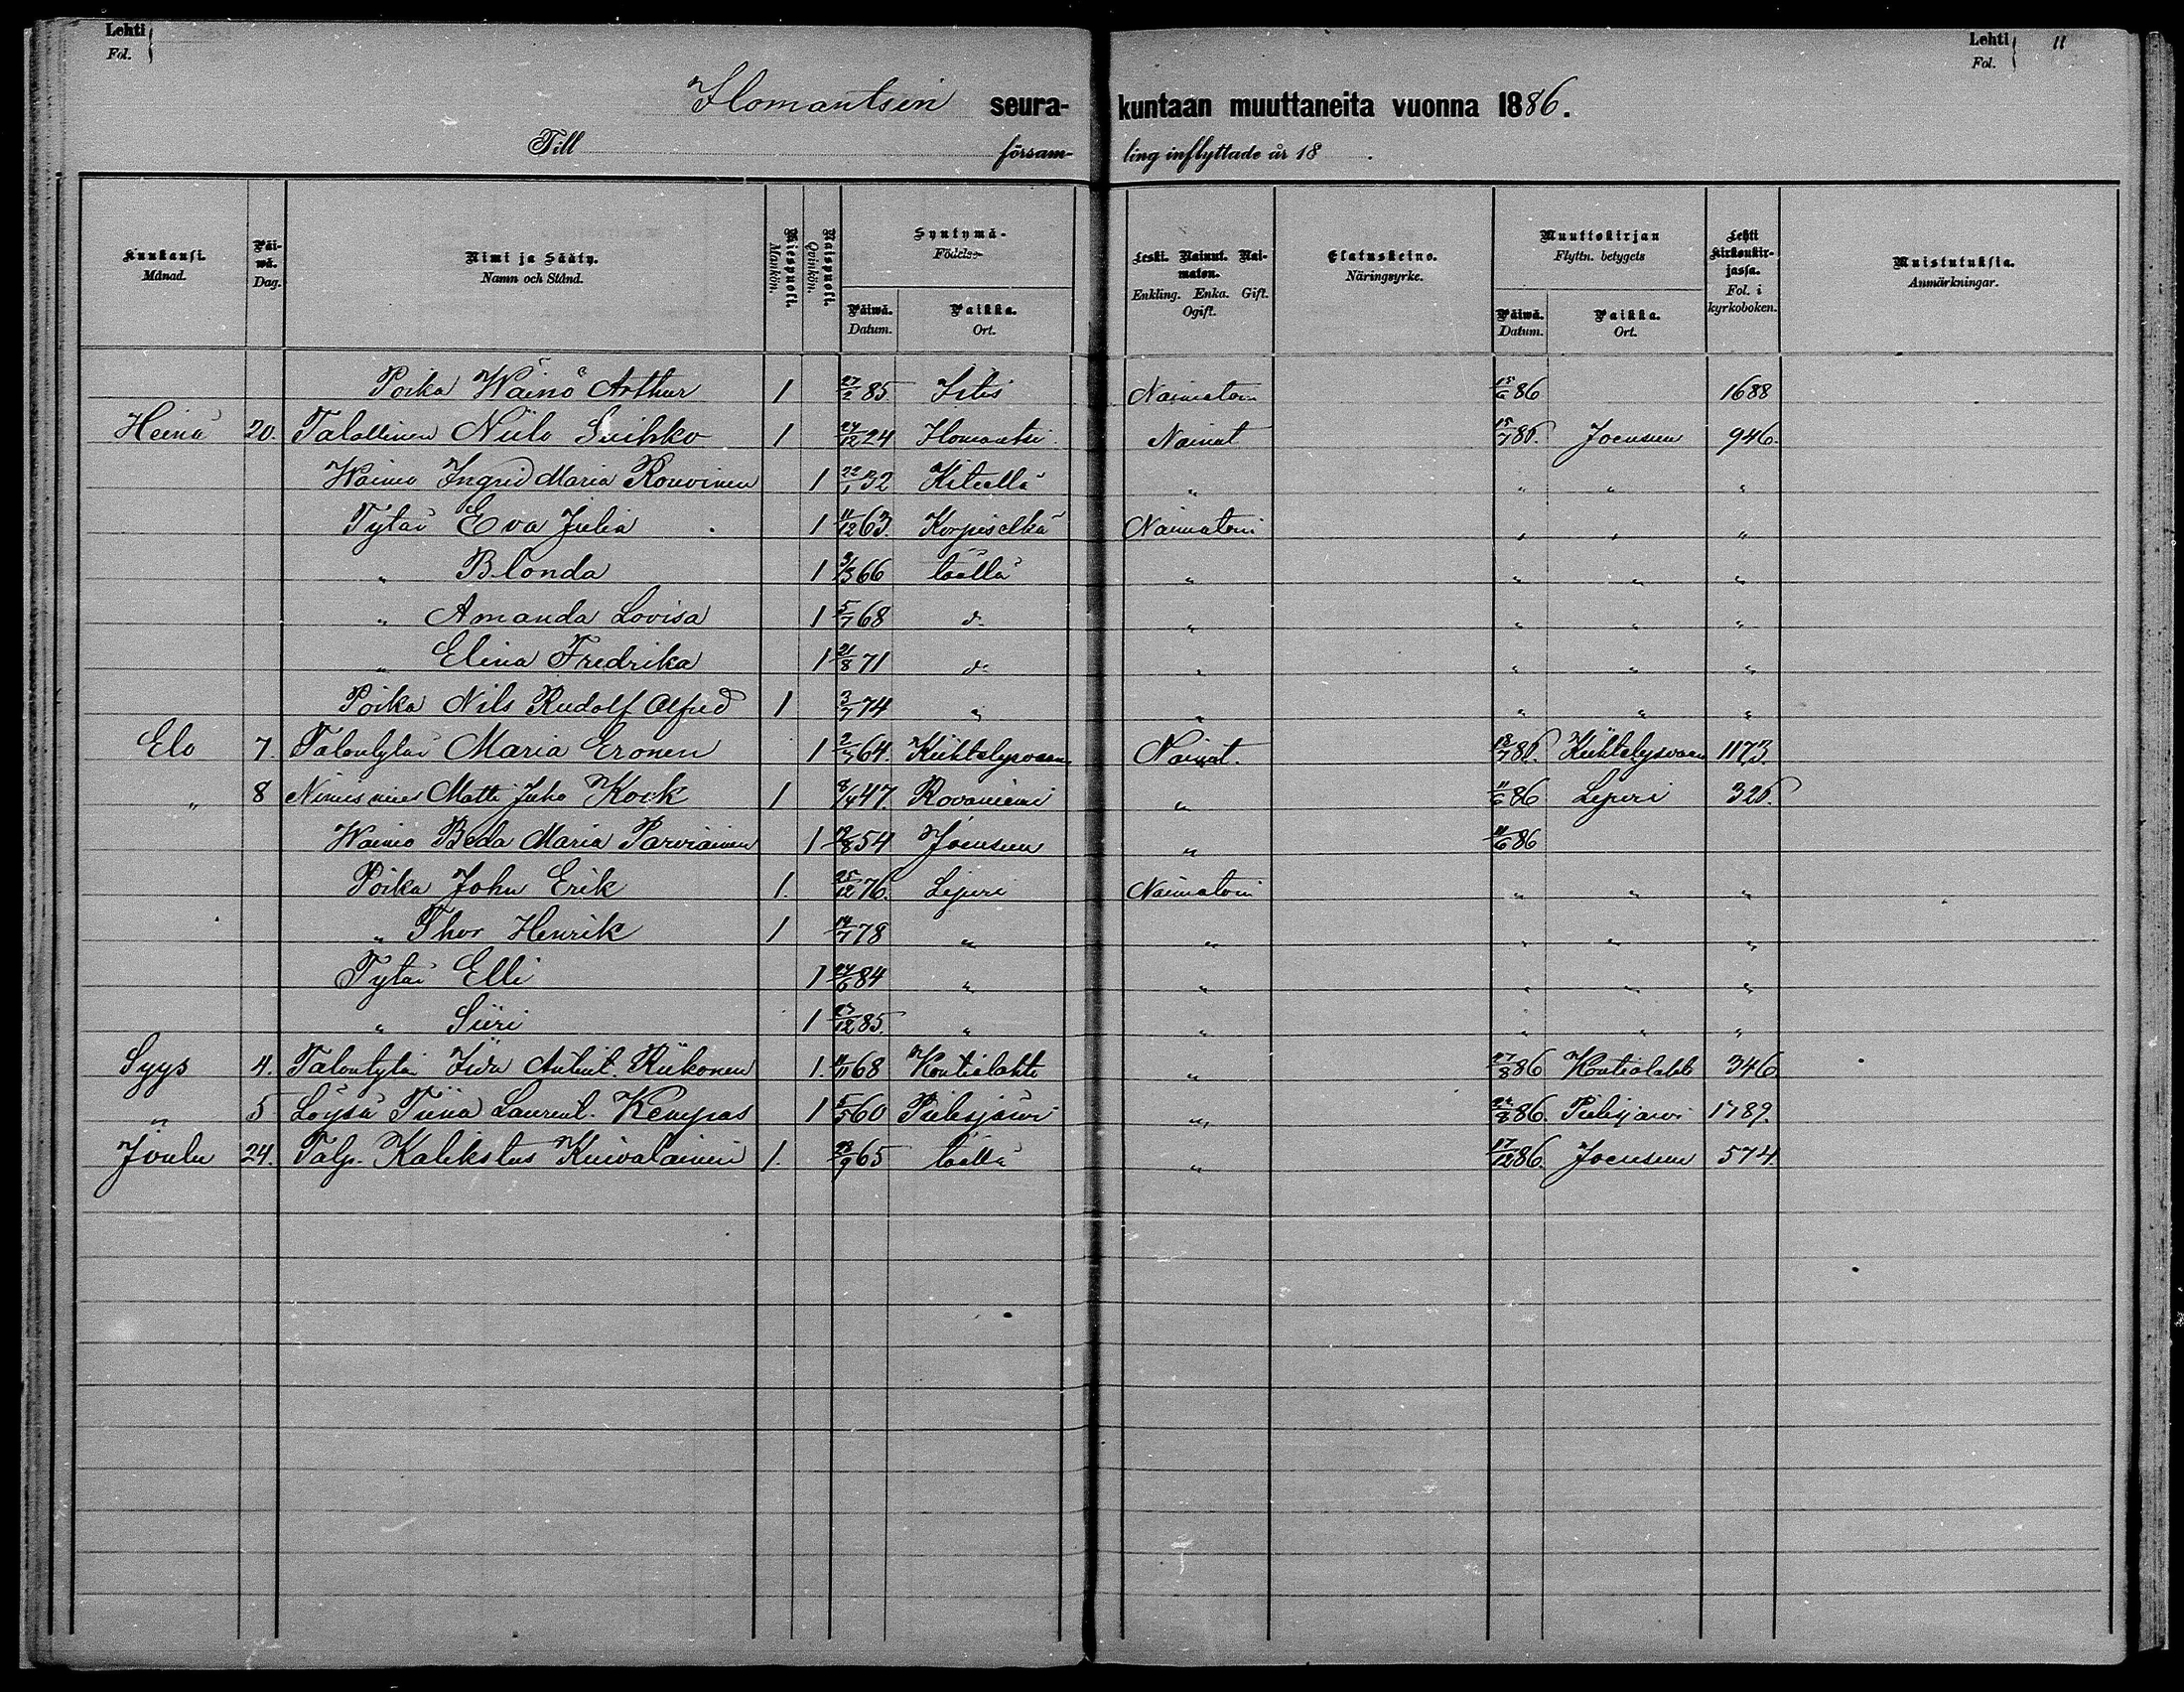 Lehti Fol. Lehti Fol. 11
Ilomantsin seurakuntaan muuttaneita vuonna 1886.
Till församling inflyttade år 18 .
Kuukausi. Månad. Päiwä. Dag. Nimi ja Sääty. Namn och Stånd. Miespuoli. Mankön. Naispuoli. Qvinkön. Syntymä- Födelse- Päiwä. Datum. Paikka. Ort. Leski. Nainut. Naimaton. Enkling. Enka. Gift. Ogift. Elatuskeino. Näringsyrke. Muuttokirjan Flyttn. betygets Päiwä. Datum. Paikka. Ort. Lehti kirkonkirjassa. Fol. i kyrkoboken. Muistutuksia. Anmärkningar.
Poika Wäinö Arthur 1 27/2 85 Naimaton 15/6 86 1688
Heinä 20. Talollinen Niilo Suihko 1 24/12 24 Ilomantsi Nainut 15/7 86. Joensuu 946.
Waimo Ingrid Maria Rouvinen 1 22/1 32 Kiteellä " " " "
Tytär Eva Julia 1 11/12 63. Korpiselkä Naimaton " " "
" Blonda 1 3/3 66 täällä " " " "
" Amanda Lovisa 1 5/7 68 d:o " " " "
" Elina Fredrika 1 21/8 71 d:o " " " "
Poika Nils Rudolf Alfred 1 3/7 74 " " " " "
Elo 7. Talontytär Maria Eronen 1 2/7 64. Kiihtelysvaara Nainut. 18/7 86. Kiihtelysvaara 1173.
" 8 Nimismies Matti Juho Kock 1 8/4 47 Rovaniemi " 11/6 86 Liperi 326.
Waimo Beda Maria Parviainen 1 19/8 54 Joensuu " 11/6 86
Poika John Erik 1. 25/12 76. Liperi Naimaton " " "
" Thor Henrik 1 14/7 78 " " " " "
Tytär Elli 1 24/6 84 " " " " "
" Siiri 1 23/12 85. " " " " "
Syys 4. Talontytär Iida Riikonen 1. 11/11 68 Kontiolahti " 27/8 86 Kontiolahti 346
" 5 Löysä Tiina Laurent. Kempas 1 5/5 60 Pielisjärvi " 22/8 86. Pielisjärvi 1789.
Joulu 24. Talp. Kalikstus Kuivalainen 1. 28/9 65 täällä " 17/12 86. Joensuu 574.